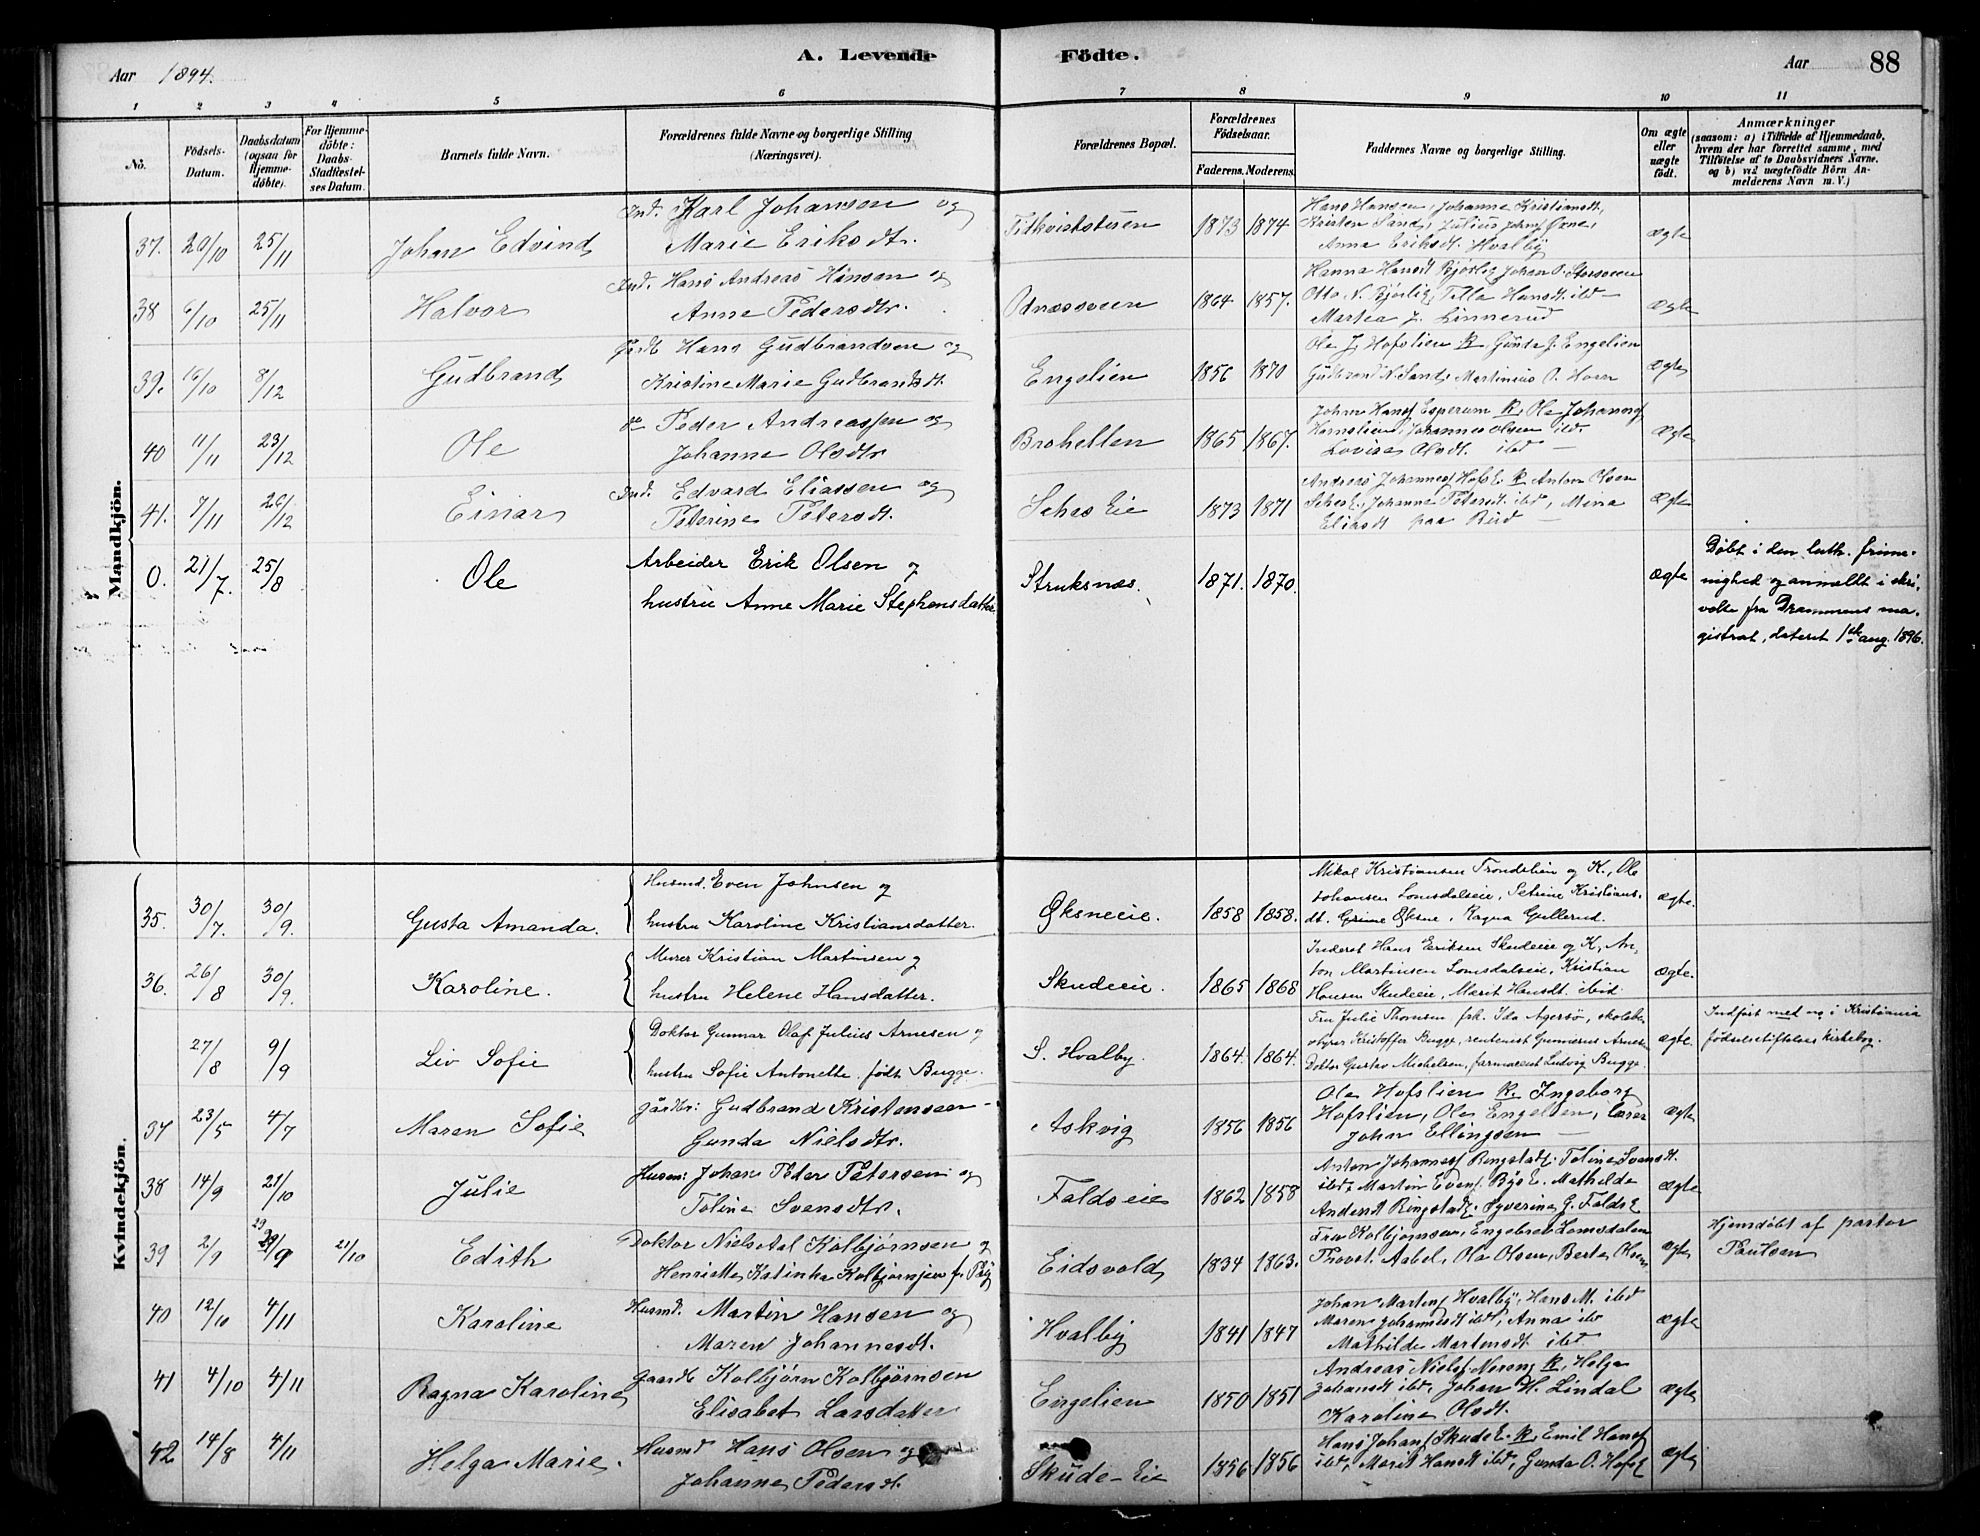 A. Levende Födte.
Aar 1894.
Aar 88
1 2 3 4 5 6 7 8 9 10 11
No.
Födsels-
Datum.
Daabsdatum
(ogsaa for
Hjemme-
döbte).
For Hjemme-
döbte:
Daabs-
Stadfæstel-
ses Datum.
Barnets fulde Navn.
Forældrenes fulde Navne og borgerlige Stilling
(Næringsvei).
Forældrenes Bopæl.
Forældrenes
Födselsaar.
Faderens. Moderens.
Faddernes Navne og borgerlige Stilling.
Om ægte
eller
uægte
födt.
Anmærkninger
(saasom: a) i Tilfælde af Hjemmedaab,
hvem der har forrettet samme, med
Tilföielse af to Daabsvidners Navne,
og b) ved uægtefödte Börn An-
melderens Navn m. V.)
Mandkjön.
37. 20/10 25/11 Johan Edvind
Ind. Karl Johansen og
Marie Eriksdtr.
1873 1874
Hans Hansen, Johanne Kristiansdt.,
Kristen Sand, Julius Johns
Anne Eriksdt. Hvalby
ægte
38 6/10 25/11 Halvor
Ind. Hans Andreas Hansen og
Anne Pedersdtr.
Odnæsveen 1864 1857.
Hanna Hansdt Bjørlig Johan
Otto N. Bjørlig, Hansdt. ibd
Martea J. Linnerud
ægte
39. 16/10 8/12 Gudbrand
Gårdb Hans Gudbrandsen og
Kristine Marie Gudbrandsdt.
Engelien 1856 1870
Ole J. Hofslien K, Gunda J. Engelien
Gudbrand N. Sand, Martinius O.
ægte
40 11/11 23/12 Ole
do Peder Andreassen og
Johanne Olsdtr
Brohellen 1865 1867.
John Hans Esperum K. Ole Johannes
Johannes Olsen ibd.
Lovise Olsdt. ibd
ægte
41. 7/11 26/12 Einar
Ind. Edvard Eliassen og
Peterine Petersdt.
Sehs Eie 1873 1871
Andreas Johannes Hofs E. K Anton Olsen
Sehs E., Johanne Petersdt. ibd, Mina
Eliasdt paa
ægte
0. 21/7. 25/8 Ole
Arbeider Erik Olsen og
hustru Anne Marie Stephensdatter
Struksnæs. 1871. 1870.
ægte
Døbt i den luth. frime-
nighed og anmeldt i skri-
velse fra Drammens ma-
gistrat, dateret 1ste aug. 1896.
Kvindekjön.
35. 30/7. 30/9. Gusta Amanda.
Husmd. Even Johnsen og
hustru Karoline Kristiansdatter.
Øksneeie. 1858 1858.
Mikal Kristiansen Trondelien og K., Ole
Johansen Lomsdalseie, Petrine Kristians-
dt. Grime Øksne, Ragna Gullerud.
ægte.
36. 26/8 30/9. Karoline.
Murer Kristian Martinsen og
hustru Helene Hansdatter.
Skudeeie. 1865 1868
Inderst Hans Eriksen Skudeeie og K, An-
ton Martinsen Lomsdalseie, Kristian
Hansen Skudeeie, Marit Hansdt. ibid.
ægte.
27/8 9/9 Liv Sofie
Doktor Gunnar Olaf Julius Arnesen og
hustru Sofie Antonette født Bugge.
S. Hvalby. 1864. 1864.
Fru Julie Thomsen frk. Ida Agersø, skolebe-
styrer Kristoffer Bugge, rentenist Gunnerius Arnesen
Doktor Gustav Michelsen, farmaceut Ludvig Bugge
ægte.
Indført med no i Kristiania
fødselsstiftelses kirkebog.
37 23/5 4/7 Maren Sofie
Gårdbr: Gudbrand Kristensen
Gunda Nielsdtr.
Askvig 1856 1856
Ole Hofslien K. Ingeborg
Hofslien, Ole Engelien,
John Ellingsen
ægte
38 14/9 21/10 Julie
Husm: Johan Peder Petersen og
Toline Svensdtr.
Faldseie 1862 1858
Anton Johannes Ringstad E. Toline Svensdt.
ibd. Martin Evens Bjø E. Mathilde
Andersdt Ringstad E. Syverine G. Falds E
ægte
39 2/9 29/9 21/10 Edith
Doktor Niels Aal Kolbjørnsen og
Henriette Katinka Kolbjørnsen f.
Eidsvold 1834 1863.
Fru Kolbjørnsen, Engebret Lomsdalen
Thovet Aabel, Ole Olsen, Berte Olsen
ægte
Hjemdøbt af pastor
Paulsen
40 12/10 4/11 Karoline
Husmd. Martin Hansen og
Maren Johannesdt.
Hvalby 1841 1847
Johan Martens Hvalby, Hans M. ibd
Maren Johannesdt ibd, Anna ibd
Mathilde Martensdt ibd
ægte
41 4/10 4/11 Ragna Karoline
Gaardb Kolbjörn Kolbjörnsen
Elisabet Larsdatter
Engelien 1850 1851
Andreas Niels Nereng K, Helga
Johansdt ibd, Johan H. Lindal
Karoline Olsdt.
ægte
42 14/8 4/11 Helga Marie.
Husmd Hans Olsen og
Johanne Pedersdt.
Skude-Eie 1856 1856
Hans Johans Skude E. K. Emil Hans
ibd, Marit Hansdt ibd, Gunda O. Hofs E
ægte